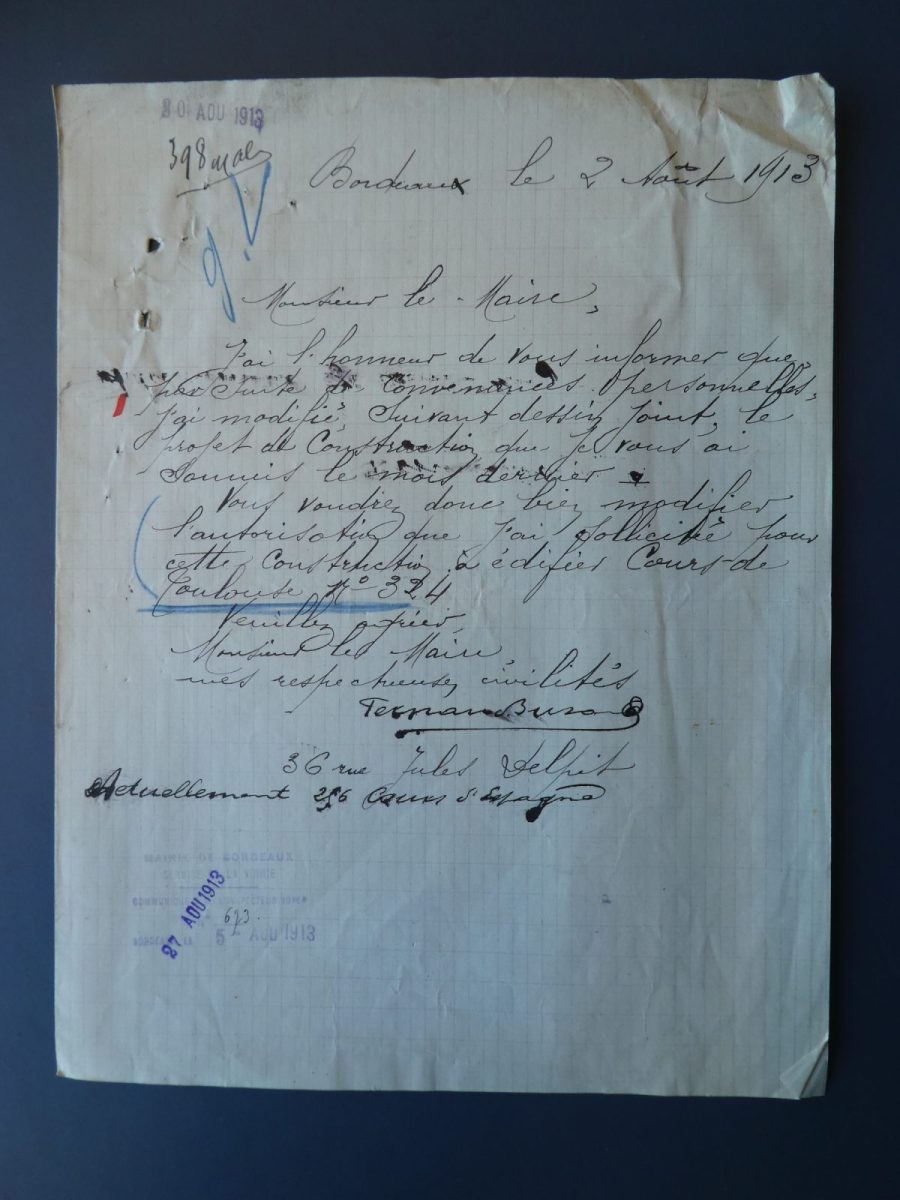 20 AOU 1913
398
Bordeaux le 2 Août 1913
Monsieur le Maire,
J'ai l'honneur de vous informer que,
par suite de convenances personnelles,
j'ai modifié, suivant dessin joint, le
projet de construction que je vous ai
soumis le mois dernier
Vous voudrez donc bien modifier
l'autorisation que j'ai sollicitée pour
cette construction à édifier Cours-de
Toulouse N° 324
Veuillez agréer,
Monsieur le Maire,
mes respectueuses civilités
36 rue Jules Delpit
Actuellement 256 Cours d'Espagne
MAIRIE DE BORDEAUX
SERVICE DE LA VOIRIE
COMMUNIQUÉ INSPECTEUR VOYER
27 AOU 1913
673
BORDEAUX, LE 5 AOU 1913